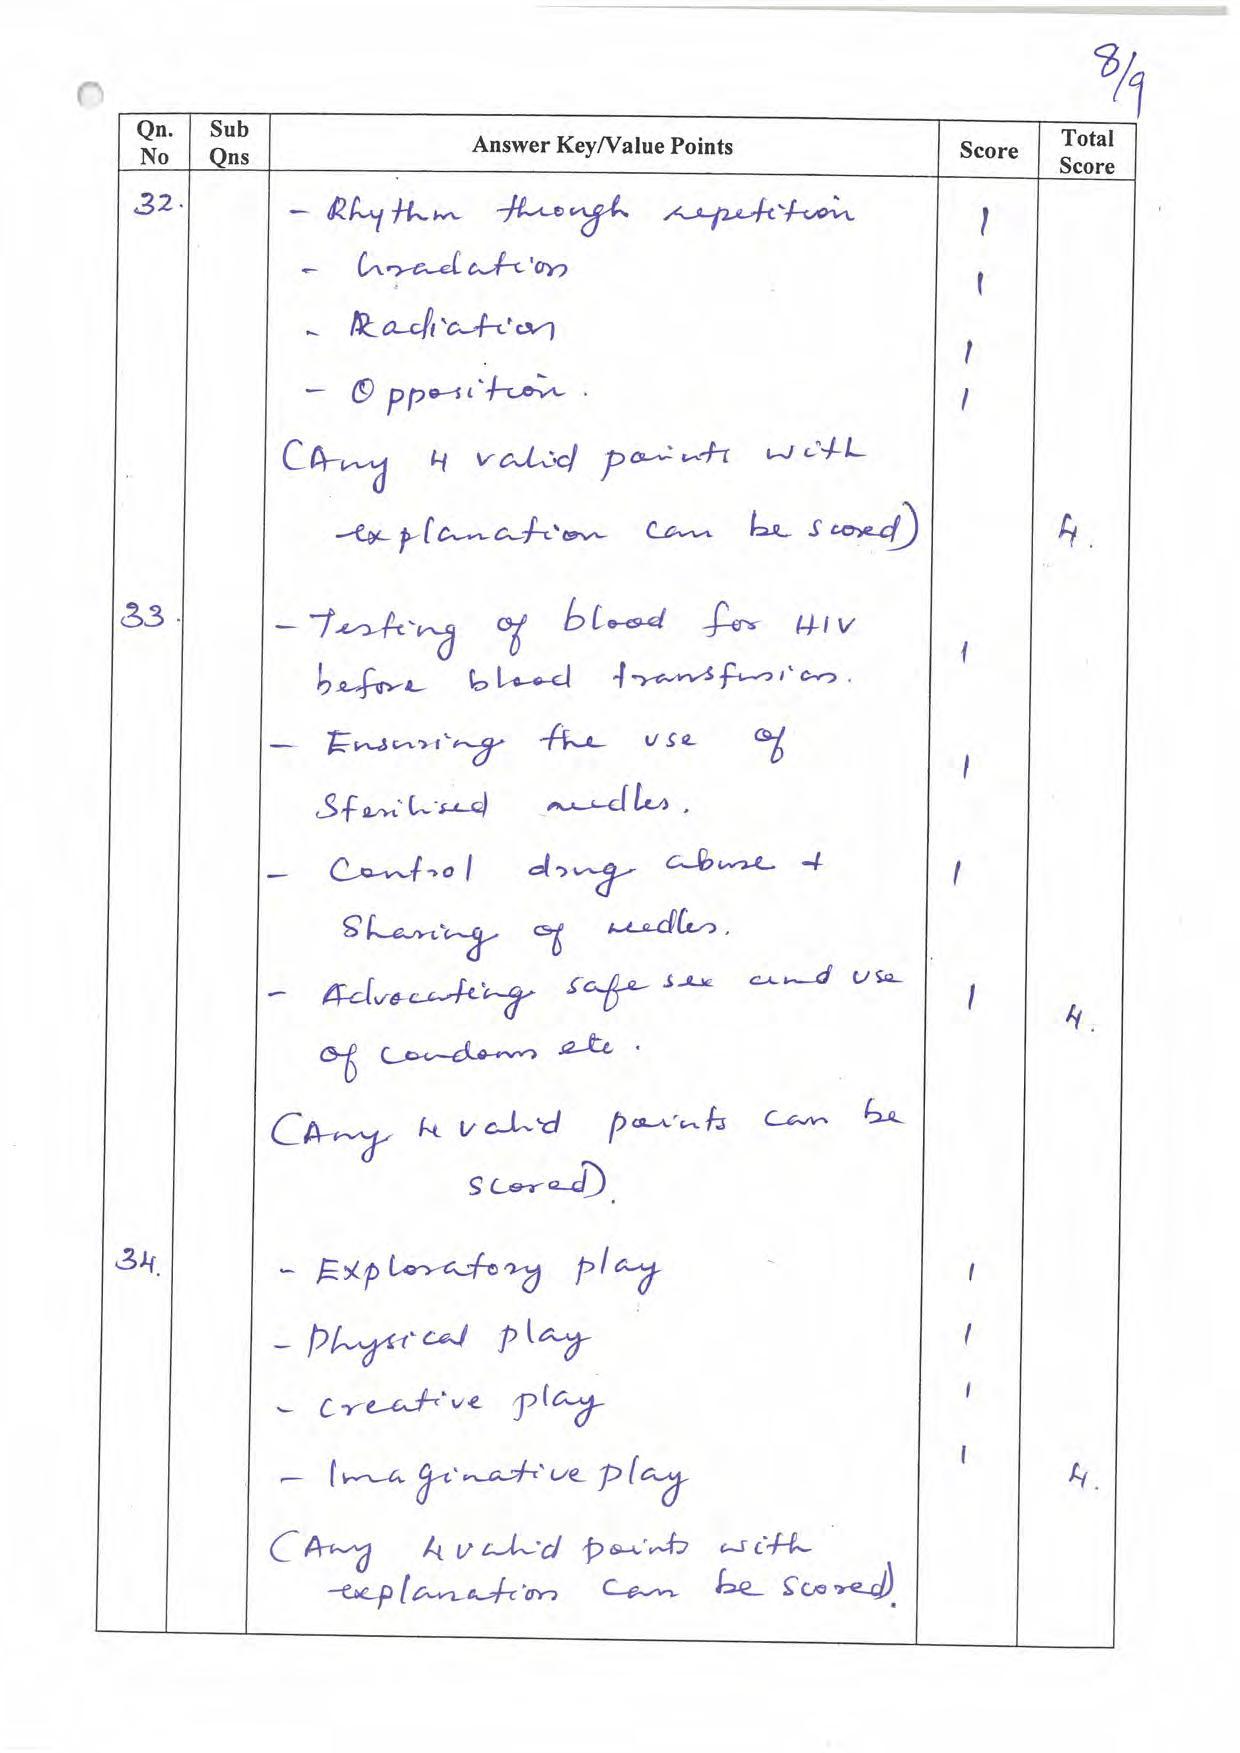 8/9
Qn. No | Sub Qns | Answer Key/Value Points | Score | Total Score
32. – Rhythm through repetition 1
– Gradation 1
– Radiation 1
– Opposition. 1
(Any 4 valid points with
explanation can be scored) 4.
33. – Testing of blood for HIV 1
before blood transfusion.
– Ensuring the use of 1
Sterilised needles.
– Control drug abuse + 1
Sharing of needles.
– Advocating safe sex and use 1
of condoms etc. 4.
(Any 4 valid points can be
scored).
34. – Exploratory play 1
– Physical play 1
– Creative play 1
– Imaginative play 1 4.
(Any 4 valid points with
explanation can be scored).